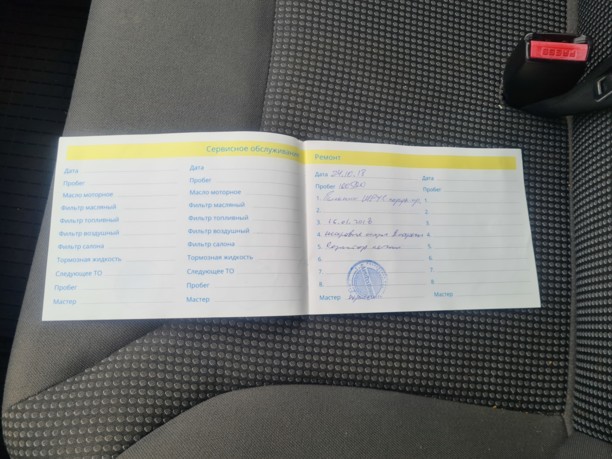 PRESS
Сервисное обслуживание
Дата Дата
Пробег Пробег
Масло моторное Масло моторное
Фильтр масляный Фильтр масляный
Фильтр топливный Фильтр топливный
Фильтр воздушный Фильтр воздушный
Фильтр салона Фильтр салона
Тормозная жидкость Тормозная жидкость
Следующее ТО Следующее ТО
Пробег Пробег
Мастер Мастер
Ремонт
Дата 24.10.18 Дата
Пробег Пробег
1. 1.
2. 2.
3. 3.
4. 4.
5. 5.
6. 6.
7. 7.
8. 8.
Мастер Мастер